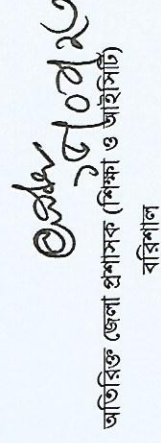 অতিরিক্ত জেলা প্রশাসক (শিক্ষা ও আইসিটি)
বরিশাল